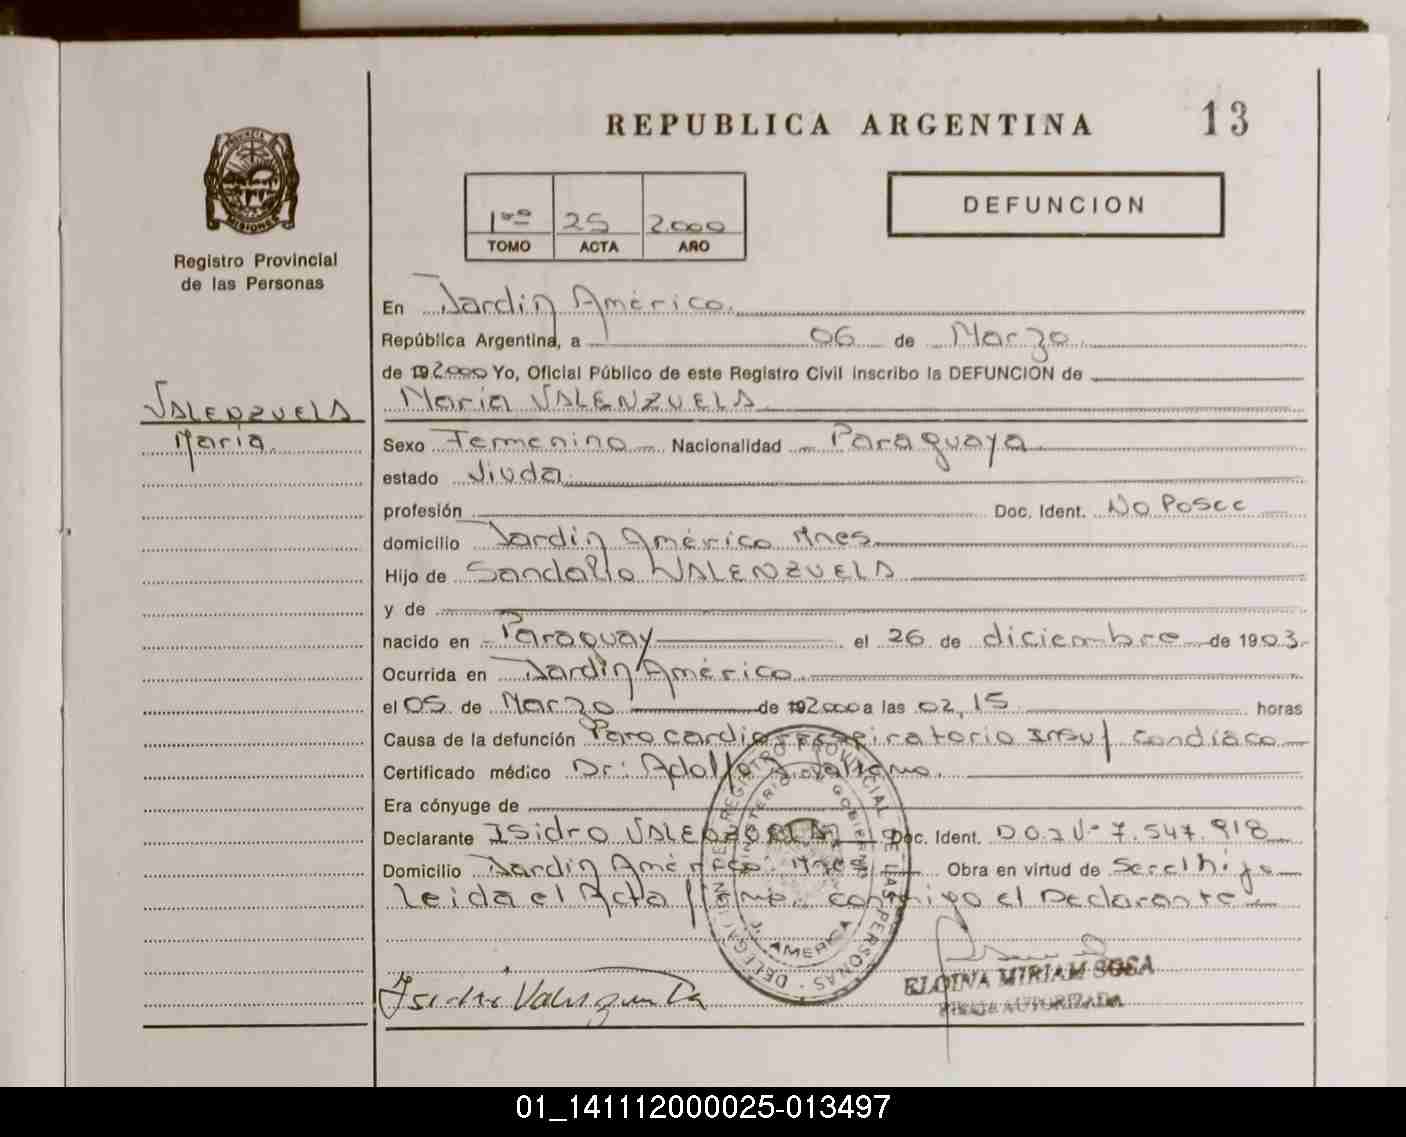 REPUBLICA ARGENTINA
13
PROVINCIA DE MISIONES
Registro Provincial
de las Personas
1ro 25 2.000
TOMO ACTA AÑO
DEFUNCION
VALENZUELA
María
En Jardín América
República Argentina, a 06 de Marzo
de 2000 Yo, Oficial Público de este Registro Civil inscribo la DEFUNCION de
María VALENZUELA
Sexo Femenino Nacionalidad Paraguaya
estado Viuda
profesión Doc. Ident. No Posee
domicilio Jardín América Mnes
Hijo de Sandalio VALENZUELA
y de
nacido en Paraguay el 26 de diciembre de 1903
Ocurrida en Jardín América
el 05 de Marzo de 2000 a las 02,15 horas
Causa de la defunción Paro cardiorrespiratorio Insuf cardíaco
Certificado médico Dr: Adolfo
Era cónyuge de
Declarante Isidro VALENZUELA Doc. Ident. D.N.I Nº 7.547.918
Domicilio Jardín América Mnes Obra en virtud de Ser el hijo
Leida el Acta firma conmigo el Declarante
DELEGACION DEL REGISTRO PROVINCIAL DE LAS PERSONAS
MINISTERIO DE GOBIERNO
J. AMERICA
Isidro Valenzuela
ELOINA MIRIAM SOSA
FIRMA AUTORIZADA
01_141112000025-013497